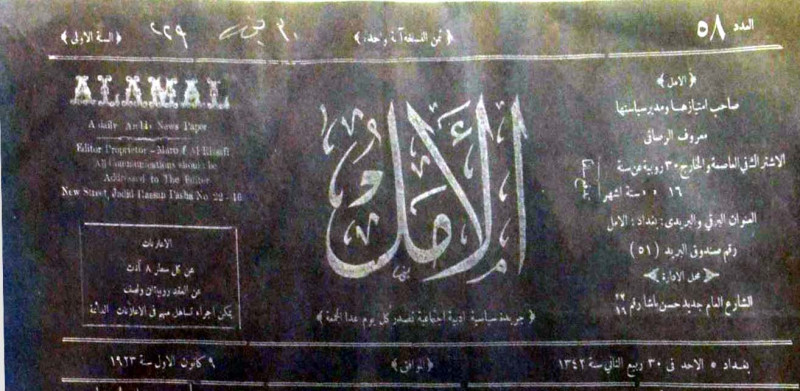 العدد ٥٨
﴿ ثمن النسخة آنة واحدة ﴾
﴿ السنة الاولى ﴾
﴿ الامل ﴾
صاحب امتيازها ومدير سياستها
معروف الرصافي
الاشتراك في العاصمة والخارج ٣٠ روبية عن سنة
١٦ ٠ ٠ ستة اشهر
العنوان البرقي والبريدي : بغداد : الامل
رقم صندوق البريد (٥١)
﴿ محل الادارة ﴾
الشارع العام جديد حسن باشا رقم ٢٢/١٦
الأمل
﴿ جريدة سياسية ادبية اجتماعية تصدر كل يوم عدا الجمعة ﴾
ALAMAL
A daily Arabic News Paper
Editor Proprietor - Maruf Al Rissafi
All Communications should be
Addressed to The Editor
New Street, Jadid Hassan Pasha No 22-16
الاعلانات
عن كل سطر ٨ آنات
عن العقد روبيتان ونصف
يمكن اجراء تساهل مهم في الاعلانات الدائمة
بغداد ٥ الاحد في ٣٠ ربيع الثاني سنة ١٣٤٢
﴿ الموافق ﴾
٩ كانون الاول سنة ١٩٢٣